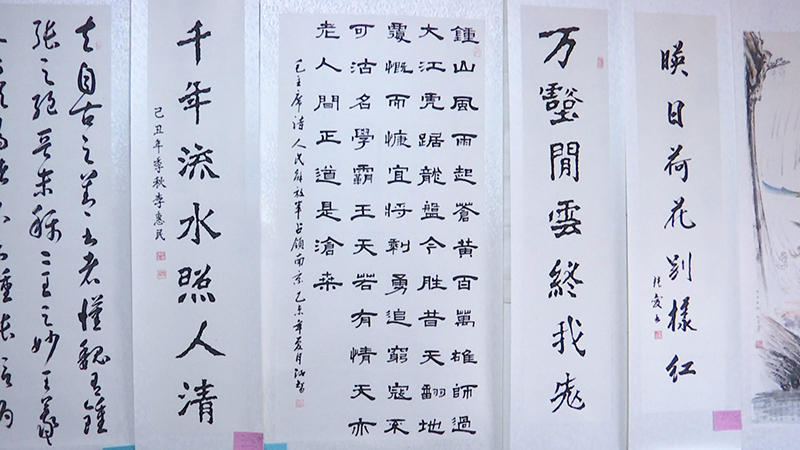 暎日荷花别樣红
万壑閒雲終我
鍾山風雨起蒼黄百萬雄師過
大江虎踞龍盤今胜昔天翻地
覆慨而慷宜将剩勇追窮寇不
可沽名學霸王天若有情天亦
老人間正道是滄桒
毛主席詩人民解放軍占領南京乙未年夏月
千年流水照人清
己丑年季秋李惠民
夫自古之善书者漢魏有鍾
張之絕晋末稱二王之妙王羲